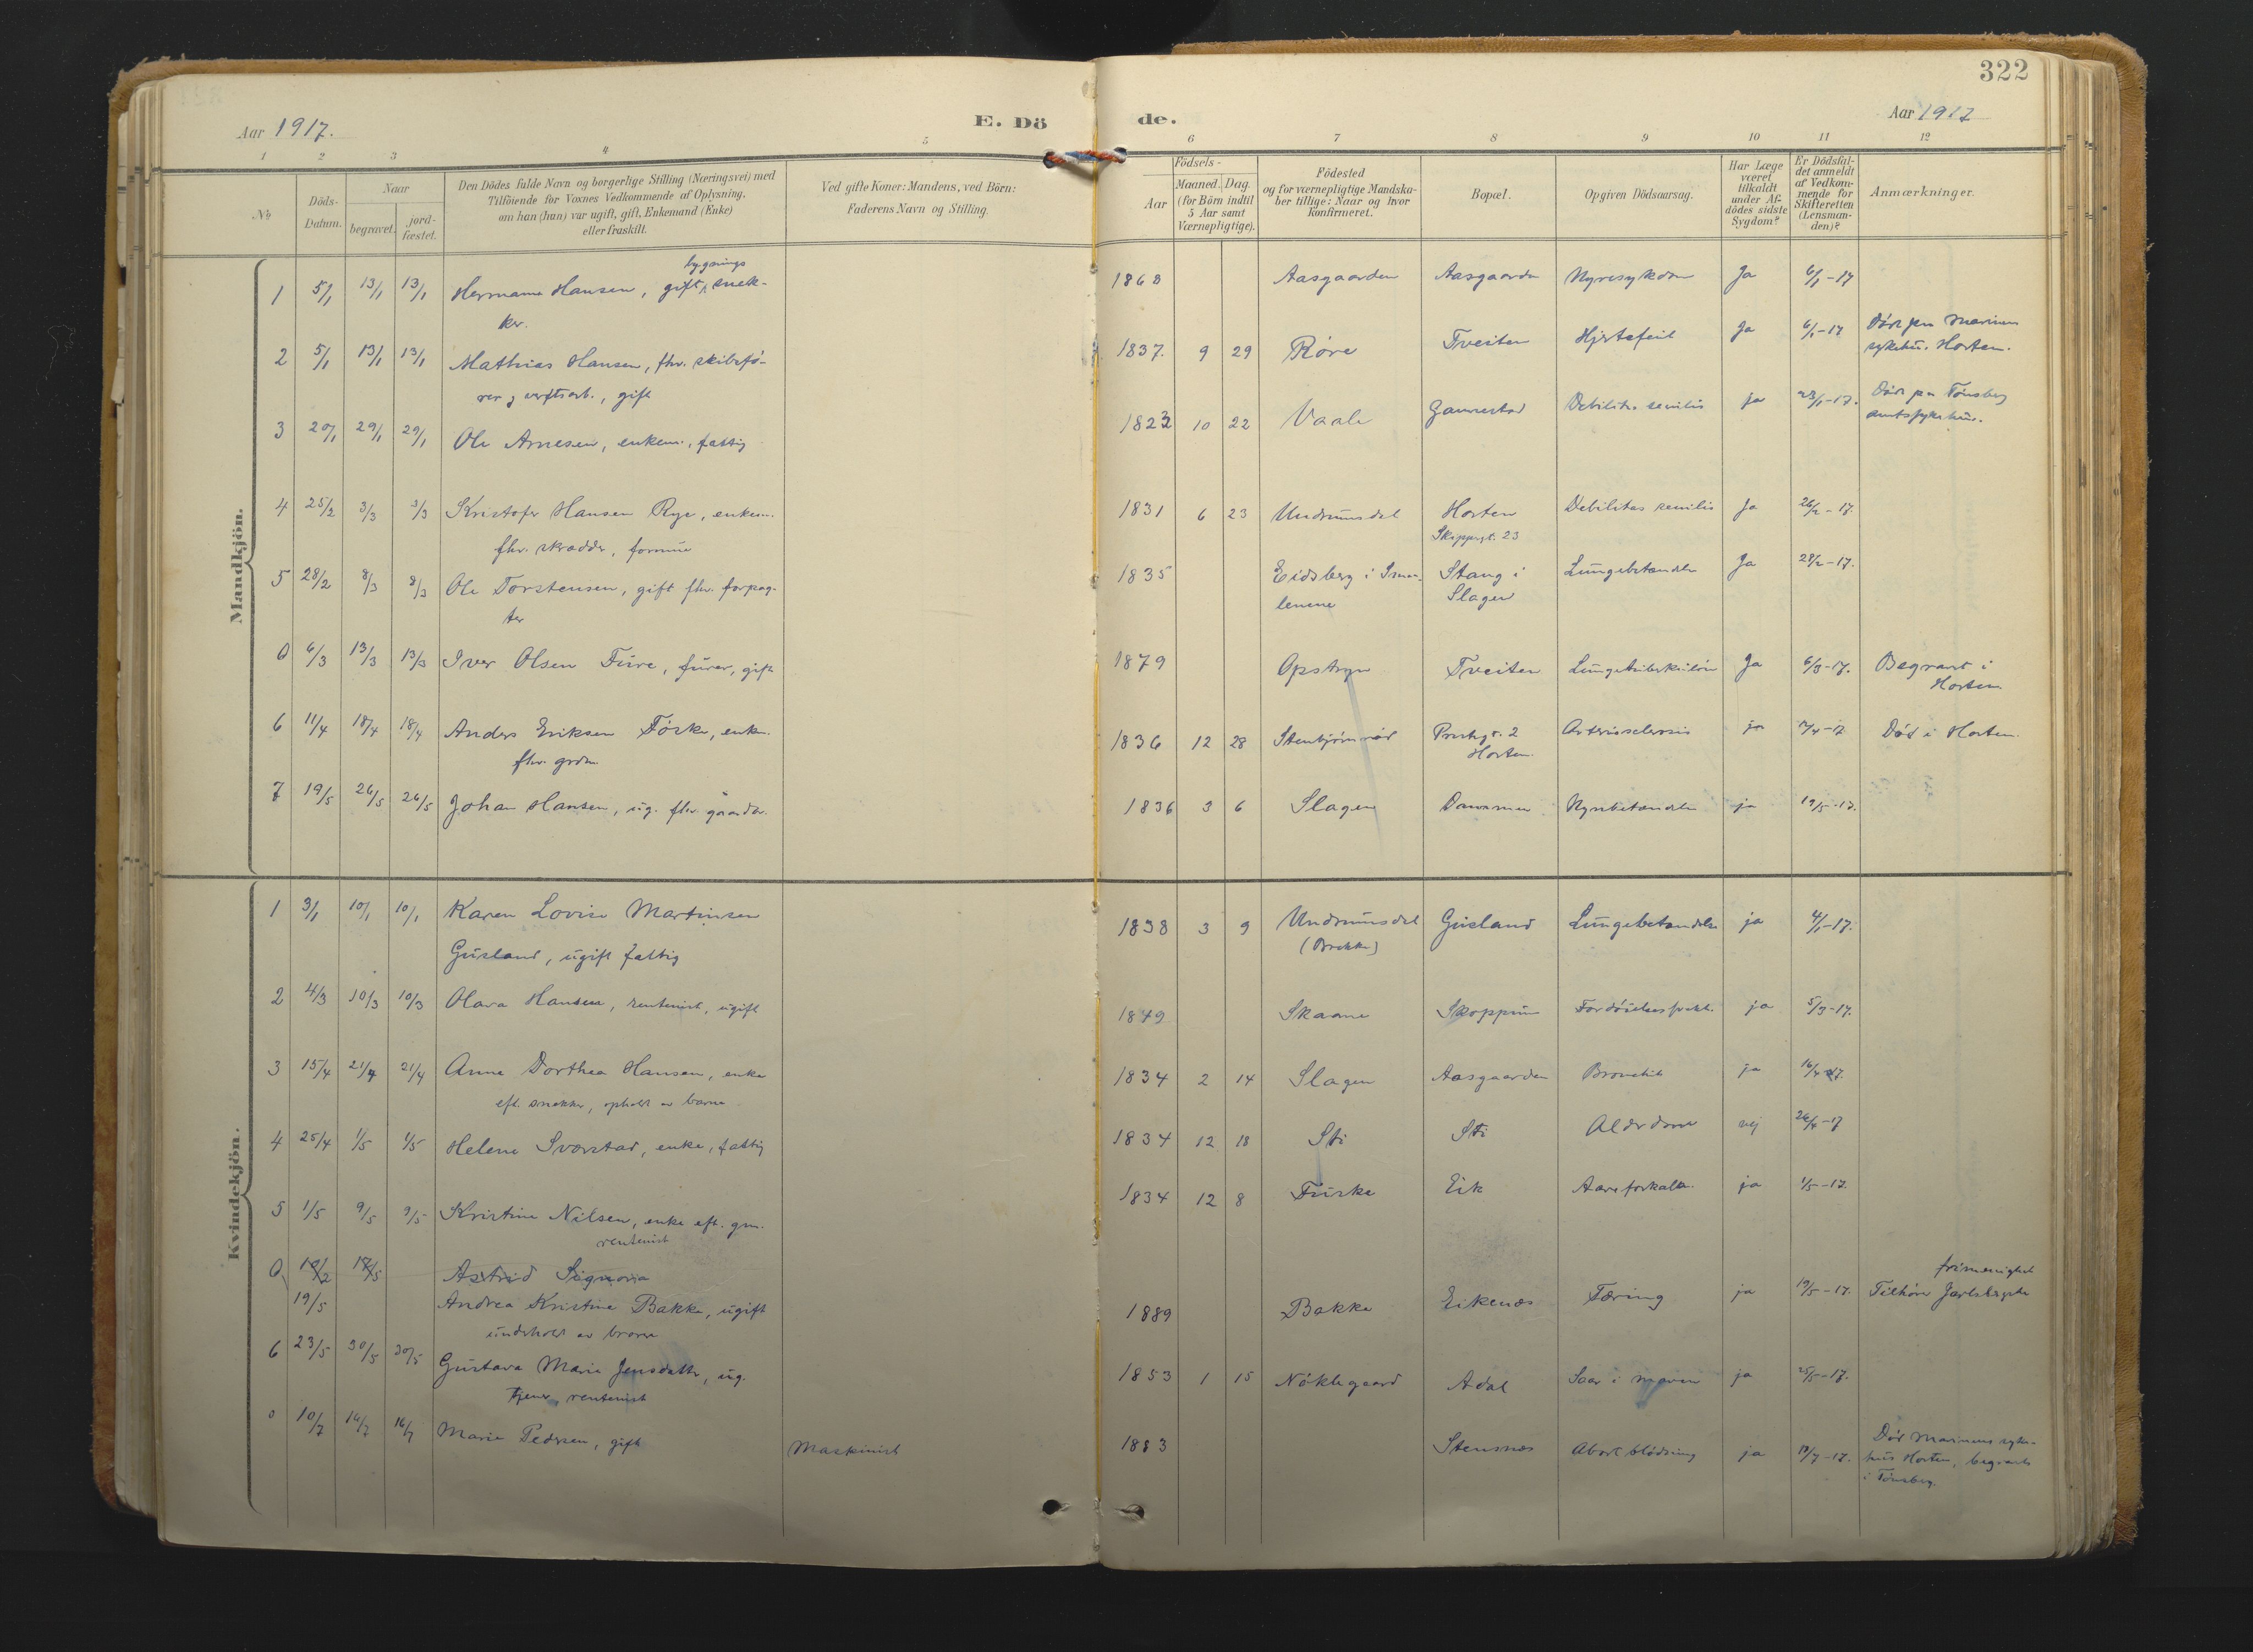 322
Aar 1917.
E. Dö
de.
Aar 1917
1 2 3 4 5
6 7 8 9 10 11 12
No
Döds-
Datum.
Naar
begravet.
jord-
fæstet.
Den Dödes fulde Navn og borgerlige Stilling (Næringsvei) med
Tilföiende for Voxnes Vedkommende af Oplysning,
om han (hun) var ugift, gift, Enkemand (Enke)
eller fraskilt.
Ved gifte Koner: Mandens, ved Börn:
Faderens Navn og Stilling.
Födsels-
Aar
Maaned. Dag.
(for Börn indtil
5 Aar samt
Værnepligtige).
Födested
og for værnepligtige Mandska-
ber tillige: Naar og hvor
konfirmeret.
Bopæl.
Opgiven Dödsaarsag.
Har Læge
været
tilkaldt
under Af-
dödes sidste
Sygdom?
Er Dödsfal-
det anmeldt
af Vedkom-
mende for
Skifteretten
(Lensman-
den)?
Anmærkninger.
Mandkjön.
bygnings
1 5/1 13/1 13/1 Hermann Hansen, gift, snek- 1868 Aasgaarden Aasgaarden Nyresykdom Ja 6/1-17
ker.
2 5/1 13/1 13/1 Mathias Hansen, fhv. skibsfö- 1837. 9 29 Röre Tveiten Hjertefeil Ja 6/1-17 Död paa Marinens
rer og verftsarb., gift sykehus. Horten.
3 20/1 29/1 29/1 Ole Arnesen, enkem., fattig 1823 10 22 Vaale Gannestad Debilitas senilis ja 23/1-17. Död paa Tönsberg
amtssykehus.
4 25/2 3/3 3/3 Kristofer Hansen Rye, enkem. 1831 6 23 Undrumsdal Horten Debilitas senilis Ja 26/2-17.
fhv. skrædder, formue Skippergt. 23
5 28/2 8/3 8/3 Ole Torstensen, gift fhv. forpag- 1835 Eidsberg i Smaa- Stang i Lungebetændelse Ja 28/2-17.
ter lenene Slagen
0 6/3 13/3 13/3 Iver Olsen Fure, furer, gift 1879 Opstryn Tveiten Lungetuberkulose Ja 6/3-17. Begravet i
Horten
6 11/4 18/4 18/4 Anders Eriksen Föske, enkem. 1836 12 28 Prestegt. 2 Arteriosclerosis ja Död i Horten.
fhv. grdm. Horten.
7 19/5 26/5 26/5 Johan Hansen, ug. fhv. gaardbr. 1836 3 6 Slagen Nyrebetændelse ja 19/5-17.
Kvindekjön.
1 3/1 10/1 10/1 Karen Lovise Martinsen 1838 3 9 Undrumsdal Gusland Lungebetændelse ja 4/1-17.
Gusland, ugift fattig (Brekke)
2 4/3 10/3 10/3 Olava Hansen, rentenist, ugift 1849 Skaane Skoppum ja 5/3-17.
3 15/4 21/4 21/4 Anne Dorthea Hansen, enke 1834 2 14 Slagen Aasgaarden Bronchit ja 16/4-17.
eft. snekker, opholdt av barna
4 25/4 1/5 1/5 Helene Sværstad, enke, fattig 1834 12 18 Sti Sti Alderdom nej 26/4-17
5 1/5 9/5 9/5 Kristine Nilsen, enke eft. grm. 1834 12 8 Fuske Eik Aareforkalkn. ja 1/5-17.
rentenist
0 18/2 17/5 Astrid Signora
frimenighet
19/5 Andrea Kristine Bakke, ugift 1889 Bakke Eikenæs Tæring ja 19/5-17. Tilhörer Jarlsbergske
underholdt av broren
6 23/5 30/5 30/5 Gustava Marie Jensdatter, ug. 1853 1 15 Nöklegaard Adal Saar i maven ja 25/5-17.
tjener, rentenist
0 10/7 16/7 16/7 Marie Pedersen, gift Maskinist 1883 Stensnæs Abort blödning ja 10/7-17. Död Marinens syke-
hus Horten, begravet
i Tönsberg.